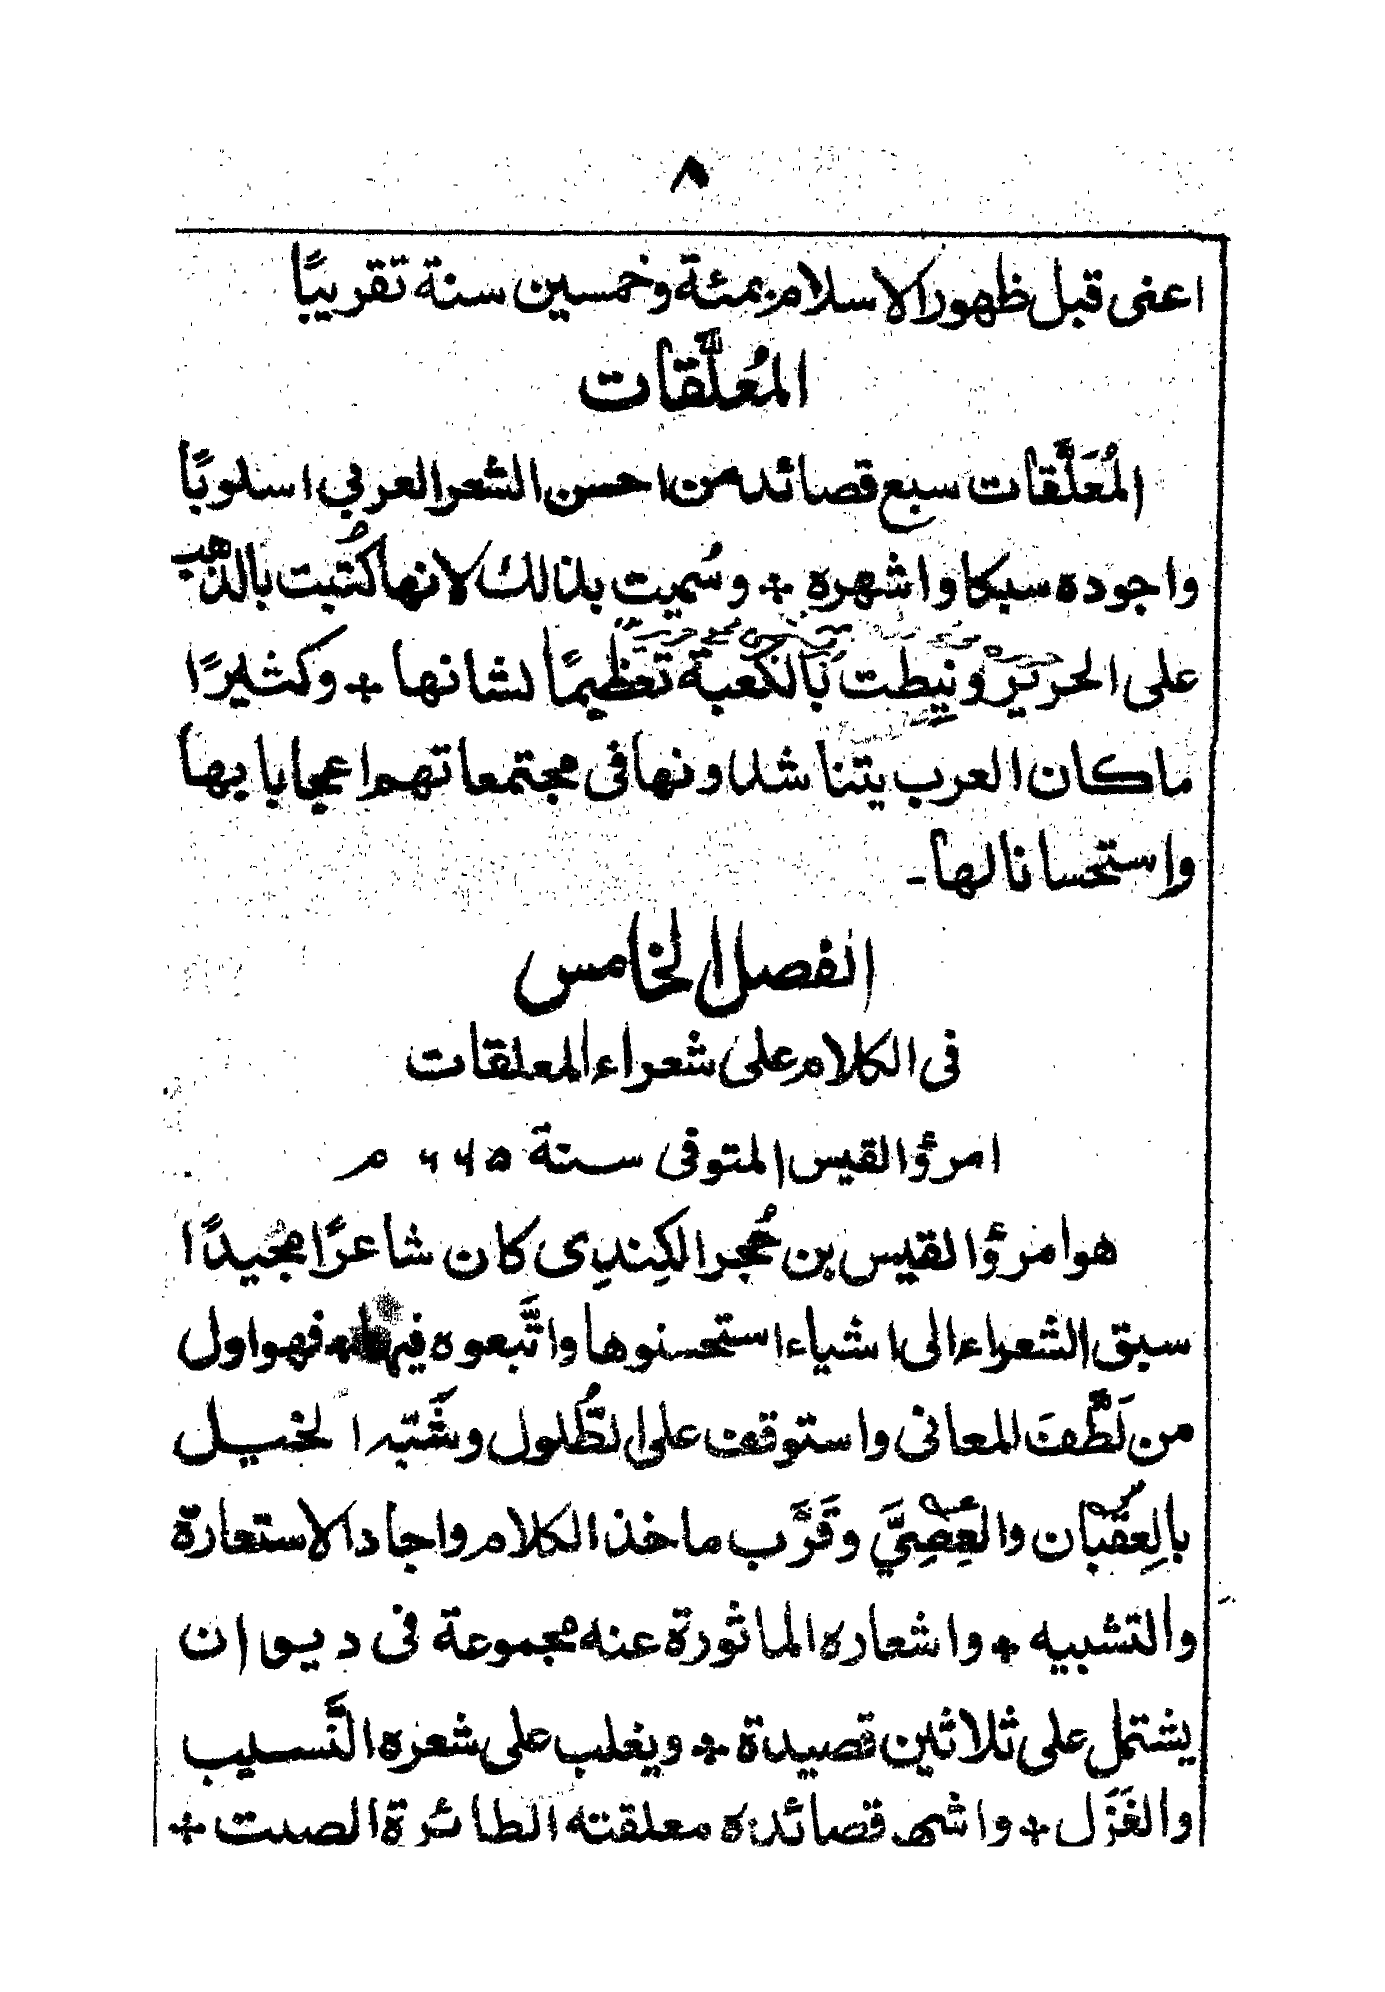 ٨
اعنى قبل ظهور الاسلام بمئة وخمسين سنة تقريبًا
المُعلَّقات
المُعَلَّقات سبع قصائد من احسن الشعر العربي اسلوبًا
واجوده سبكا واشهره ٭ وسُميت بذلك لانها كُتبت بالذهب
على الحرير ونيطت بالكعبة تعظيمًا لشانها ٭ وكثيرًا
ما كان العرب يتناشدونها فى مجتمعاتهم اعجابا بها
واستحسانا لها ـ
الفصل الخامس
فى الكلام على شعراء المعلقات
امرؤ القيس المتوفى سنة ٥٦٦ م
هو امرؤ القيس بن حُجر الكِندِى كان شاعرًا مجيدًا
سبق الشعراء الى اشياء استحسنوها واتَّبعوه فيها فهو اول
من لَطَّفَ المعانى واستوقف على الطُّلول وشَبّه الخيل
بالعِقبان والعِصِيَّ وقَرَّب ماخذ الكلام واجاد الاستعارة
والتشبيه ٭ واشعاره الماثورة عنه مجموعة فى ديوان
يشتمل على ثلاثين قصيدة ٭ ويغلب على شعره النَّسيب
والغَزَل ٭ واشهر قصائده معلقته الطائرة الصيت ٭